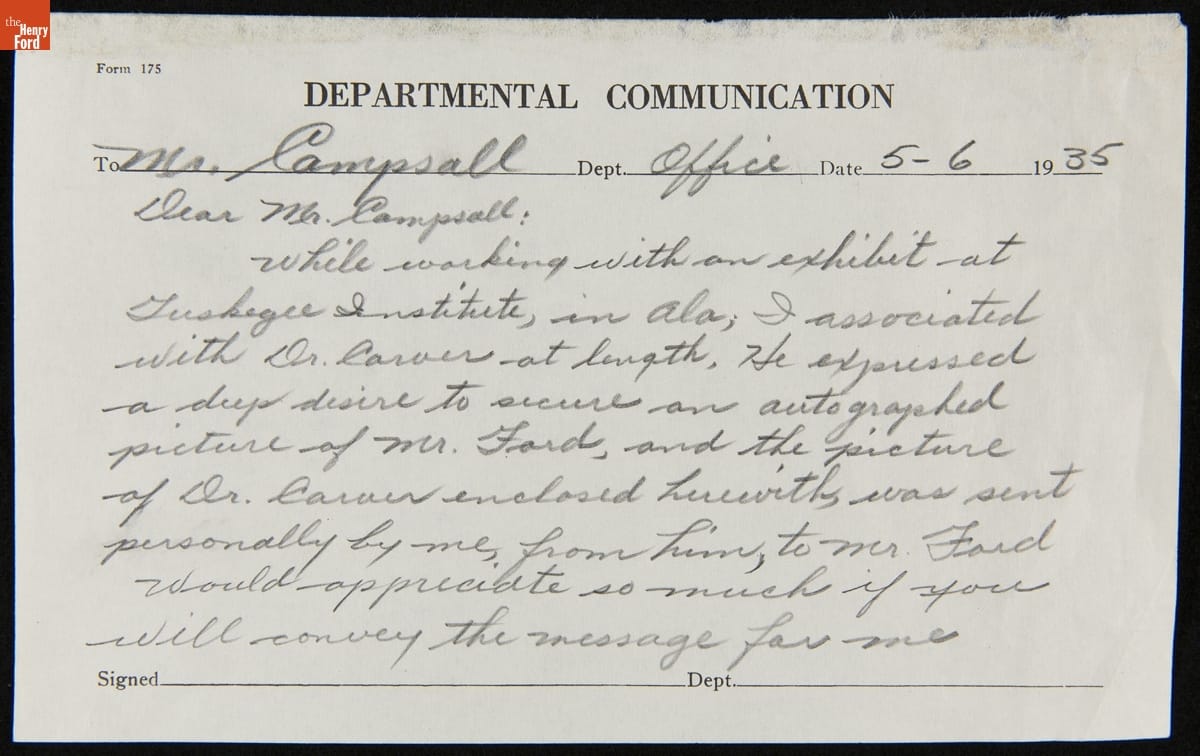 the
Henry
Ford
Form 175
DEPARTMENTAL COMMUNICATION
To Mr. Campsall Dept. Office Date 5-6 1935
Dear Mr. Campsall:
While working with an exhibit at
Tuskegee Institute, in Ala; I associated
with Dr. Carver at length. He expressed
a deep desire to secure an autographed
picture of Mr. Ford, and the picture
of Dr. Carver enclosed herewith, was sent
personally by me, from him, to Mr. Ford
Would appreciate so much if you
will convey the message for me
Signed Dept.